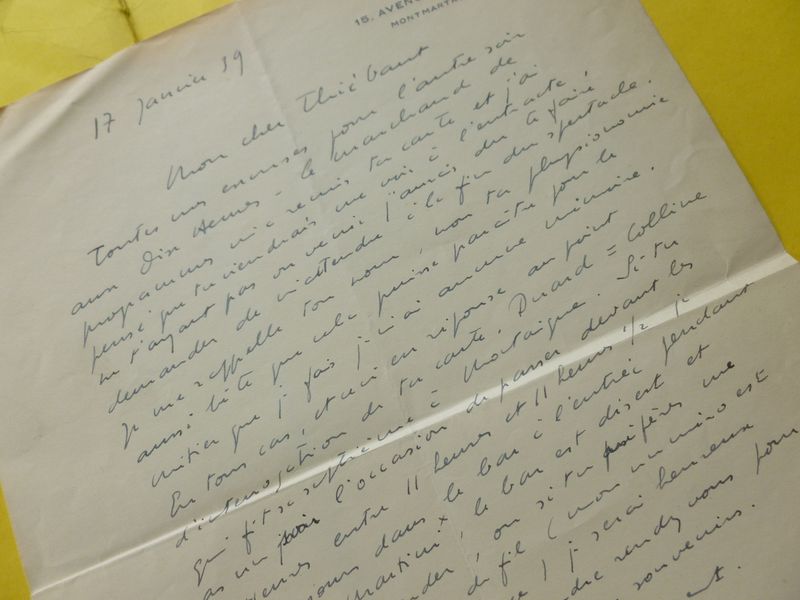 15, AVEN
MONTMARTR
17 Janvier 39
Mon cher Thiébaut
Toutes mes excuses pour l'autre soir
aux Dix Heures - le marchand de
programmes m'a remis ta carte et j'ai
pensé que tu viendrais me voir à l'entracte.
ne t'ayant pas vu venir j'aurais du te faire
demander de m'attendre à la fin du spectacle.
Je me rappelle ton nom, non ta physionomie
aussi bête que cela puisse paraître pour le
métier que je fais je n'ai aucune mémoire.
En tous cas, et ceci en réponse au point
d'interrogation de ta carte, = Colline
qui fit sa à Montaigne. Si tu
as un soir l'occasion de passer devant les
heures entre 11 heures et 11 heures 1/2 je
toujours dans le bar à l'entrée pendant
le bar est disert et
ou si tu préfères me
de fil (mon numéro est
) je serai heureux
rendez vous pour
souvenirs.